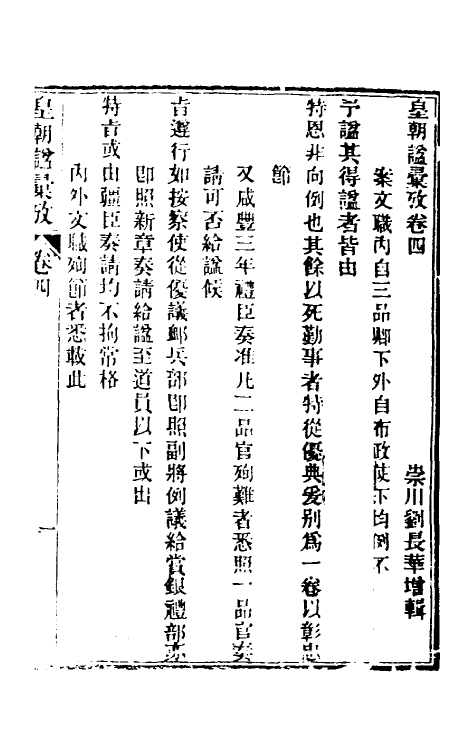 皇朝諡彙攷卷四
崇川劉長華增輯
案文職內自三品卿下外自布政使下均例不
予諡其得諡者皆由
特恩非向例也其餘以死勤事者特從優典爰別爲一卷以彰忠
節
又咸豐三年禮臣奏准凡二品官殉難者悉照一品官奏
請可否給諡候
旨遵行如按察使從優議卹兵部卽照副將例議給賞銀禮部亦
卽照新章奏請給諡至道員以下或由
特旨或由疆臣奏請均不拘常格
內外文職殉節者悉載此
皇朝諡彙攷
卷四
一